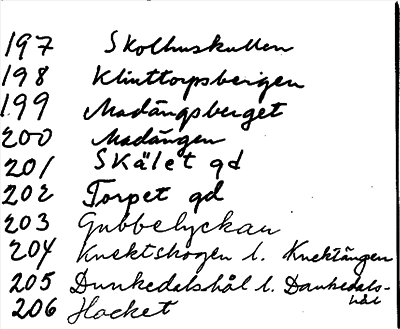 197 Skolhuskullen
198 Klinttorpsbergen
199 Madängsberget
200 Madängen
201 Skälet gd
202 Torpet gd
203 Gubbelyckan
204 Knektskogen l. Knektängen
205 Dunkedalshål l. Dankedals-
hål
206 Hocket